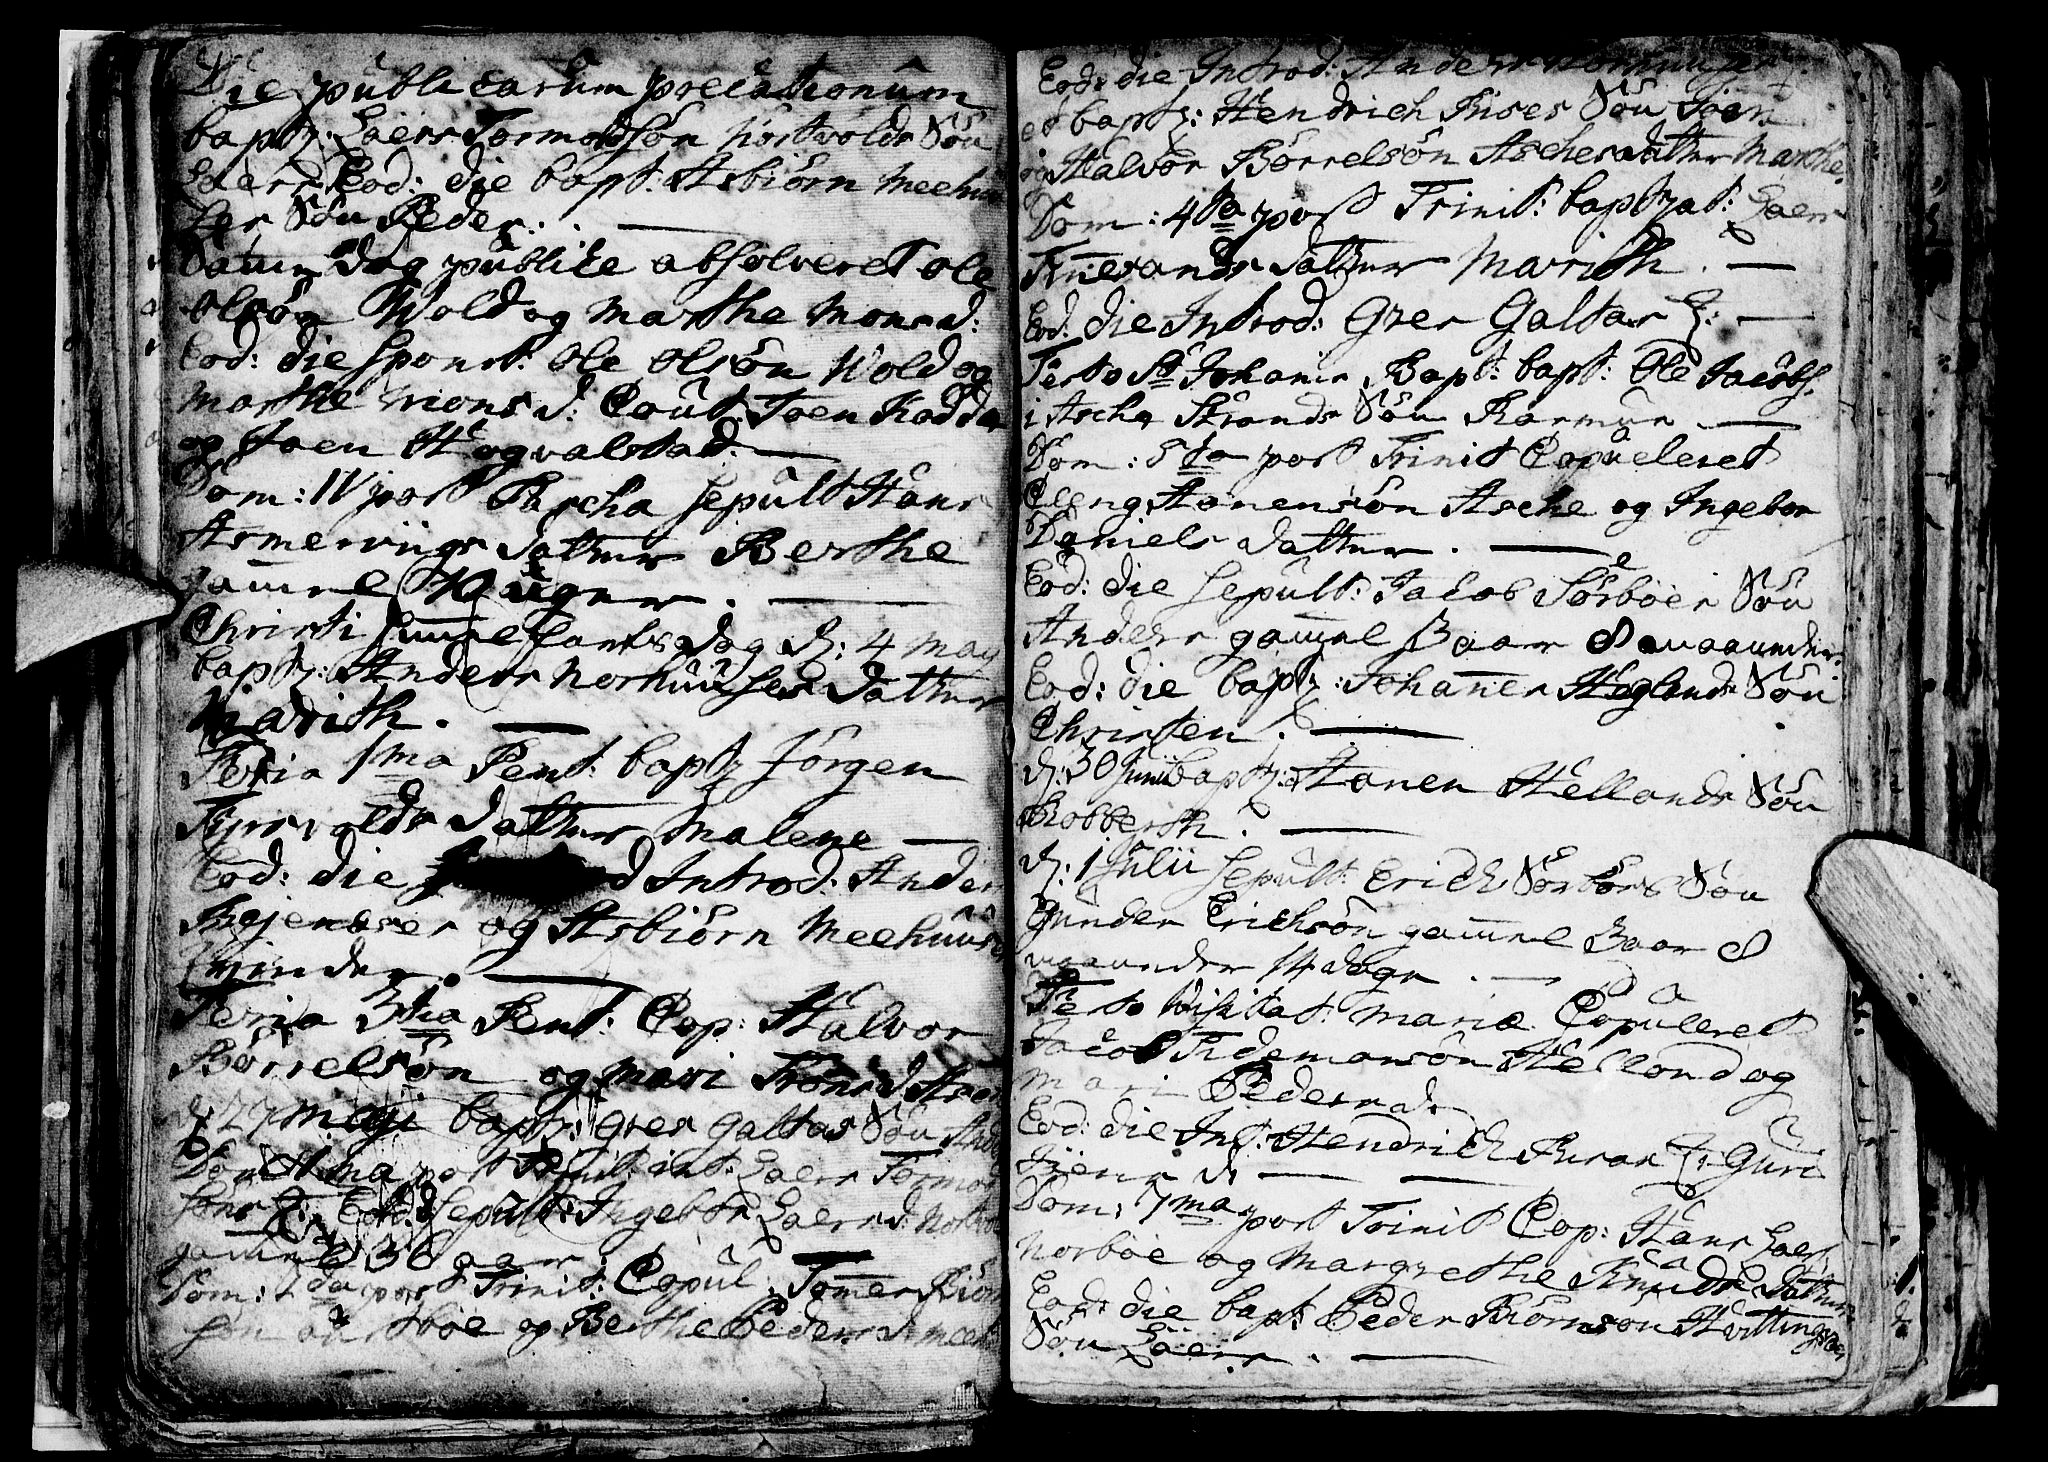 Die publicarum precationum
bapt: Laers Tormodsøn Nortvolds Søn
Laers Eod: die bapt: Asbiørn Meehuu
ses Søn Peder. —
Samme Dag publice absolveret Ole
Olsøn Wold og Marthe Monsd:
Eod: die spons: Ole Olsøn Wold og
Marthe Monsd: Caut: Joen Hadda
og Joen Hogvalstad. —
Dom: IV post Pascha sepult Hans
Asmervigs datter Berthe
gammel 10 uger. —
Christi Himmelfarts dag d: 4 May
bapt: Anders Norhuuses datter
Marith. —
Feria 1ma Pent: bapt Jørgen
datter Malene —
Eod: die Introd: Anders
og Asbiørn Meehuuses
qvinder. —
Feria 3tia Pent: Cop: Halvor
Børrelsøn og Mari
d 27 Maji bapt: Gres Galtas Søn
Dom 1ma post Trinit: int: Laers Tormod
søns Q: Eod: d sepult: Ingebor Laersd:
gammel 36 aar.
Dom: 2da post Trinit: Copul: Tomes
søn og Berthe Pedersd
Eod: die Introd: Anders
et bapt: Hendrich Riises Søn Joen
og Halvor Børrelsøn Asches datter Marthe.
Dom: 4ta post Trinit: baptizat: Laers
datter Marith. —
Eod: die Introd: Gres Galtas Q: —
Festo St Johanis Bapt: bapt: Ole Jacobs:
i Asche Strands Søn Rasmus —
Dom: 5ta post Trinit Copuleret
Elling Hanensøn Asche og Ingebor
Daniels datter. —
Eod: die sepult: Jacob Sørbøes Søn
Anders gammel 3 aar 8 maaneder.
Eod: die bapt: Johannes Heglands Søn
Christen. —
d: 30 Junii bapt: Hanen Hellands Søn
Robberth. —
d: 1 Julii sepult: Erich Sørbøes Søn
Gunder Erichsøn gammel 3 aar 8
maaneder 14 dage. —
Festo Visitat: Mariæ Copuleret
Jacob Tidemansøn Helland og
Mari Pedersd:
Eod: die Int: Hendrich Q: Guri
d —
Dom: 7ma post Trinit Cop: Hans Laers:
Norbøe og Margrethe Knuds datter
Eod: die bapt: Peder Biørnsøn Hvittingsøes
Søn Laers. —